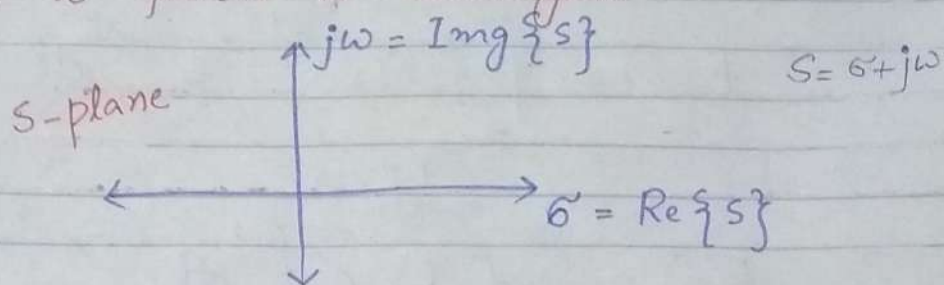 jω = Img {s}
S = σ + jω
S-plane
σ = Re {s}